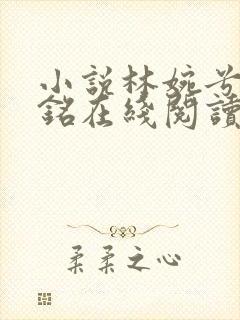 小說林婉兮
銘在綫閱讀
柔柔之心